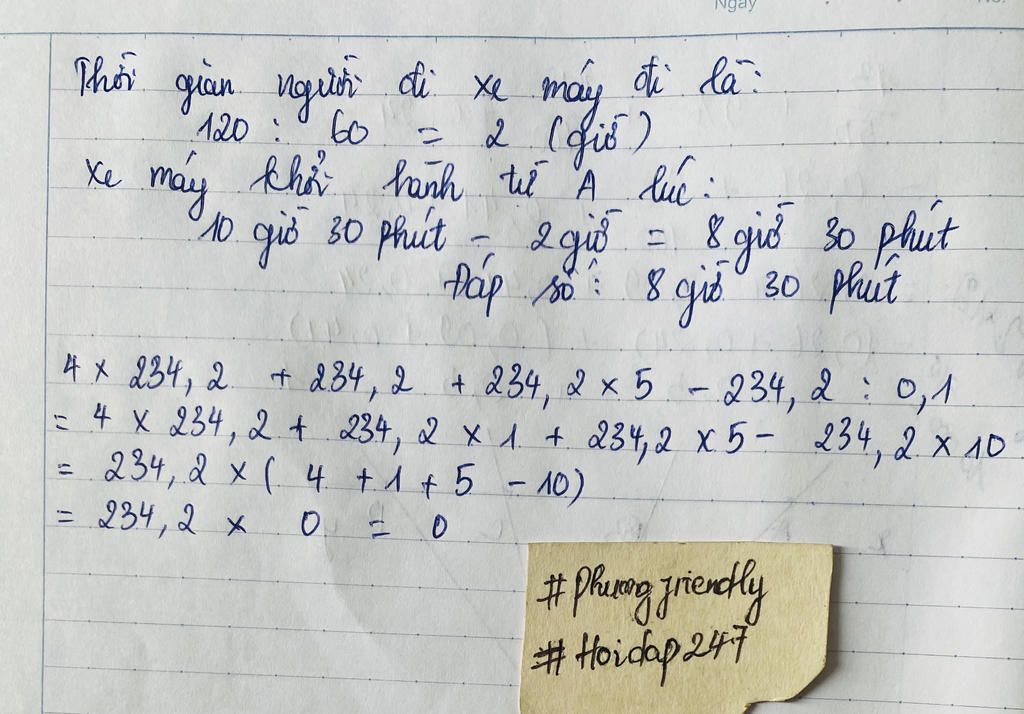 Ngày
No.
Thời gian người đi xe máy đi là:
120 : 60 = 2 (giờ)
xe máy khởi hành từ A lúc:
10 giờ 30 phút - 2 giờ = 8 giờ 30 phút
Đáp số: 8 giờ 30 phút
4 x 234,2 + 234,2 + 234,2 x 5 - 234,2 : 0,1
= 4 x 234,2 + 234,2 x 1 + 234,2 x 5 - 234,2 x 10
= 234,2 x ( 4 + 1 + 5 - 10)
= 234,2 x 0 = 0
# Phuong friendly
# Hoidap247